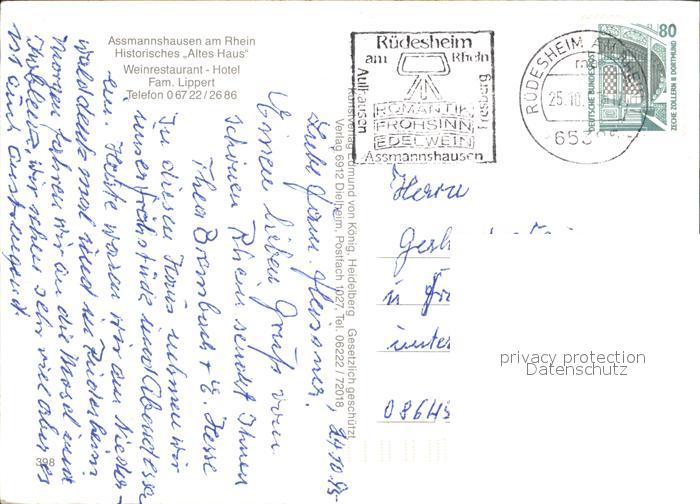 Assmannshausen am Rhein
Historisches „Altes Haus"
Weinrestaurant - Hotel
Fam. Lippert
Telefon 0 67 22 / 26 86
398
Kunstverlag Edmund von König, Heidelberg Gesetzlich geschützt
Verlag 6912 Dielheim, Postfach 1027, Tel. 06222 / 72018
Rüdesheim
am Rhein
Aulhausen
Presberg
ROMANTIK
FROHSINN
EDELWEIN
Assmannshausen
RÜDESHEIM AM RHEIN
25.10.
653
80
DEUTSCHE BUNDESPOST
ZECHE ZOLLERN II DORTMUND
24.10.93
Liebe Fam.
Einen lieben Gruß vom
schönen Rhein sendet Ihnen
Thea Brembach + E. Hesse
In diesem Haus nehmen wir
unser Frühstück und Abendessen
ein. Heute waren wir am Nieder-
walddenkmal und in Rüdesheim
Morgen fahren wir an die Mosel und
Koblenz, wir sehen sehr viel aber es
ist auch anstrengend.
Herrn
Gerh
u
unter
08645
privacy protection
Datenschutz